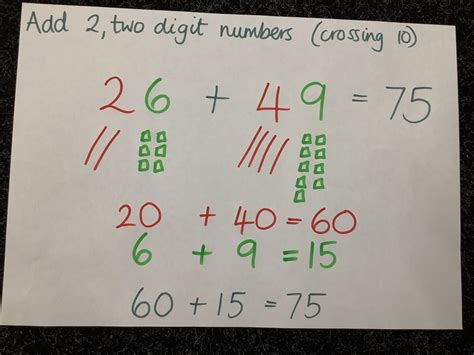 Add 2, two digit numbers (crossing 10)
26 + 49 = 75
20 + 40 = 60
6 + 9 = 15
60 + 15 = 75